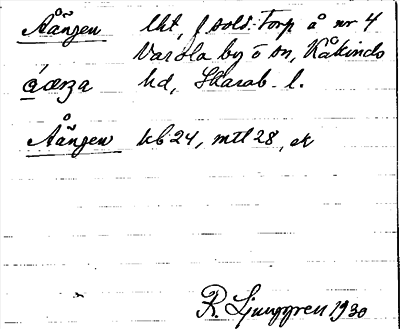 Åängen lht, f sold.-torp å nr 4
Varola by o sn, Kåkinds
hd, Skarab. l.
Åängen kb 24, mtl 28, ek
R. Ljunggren 1930